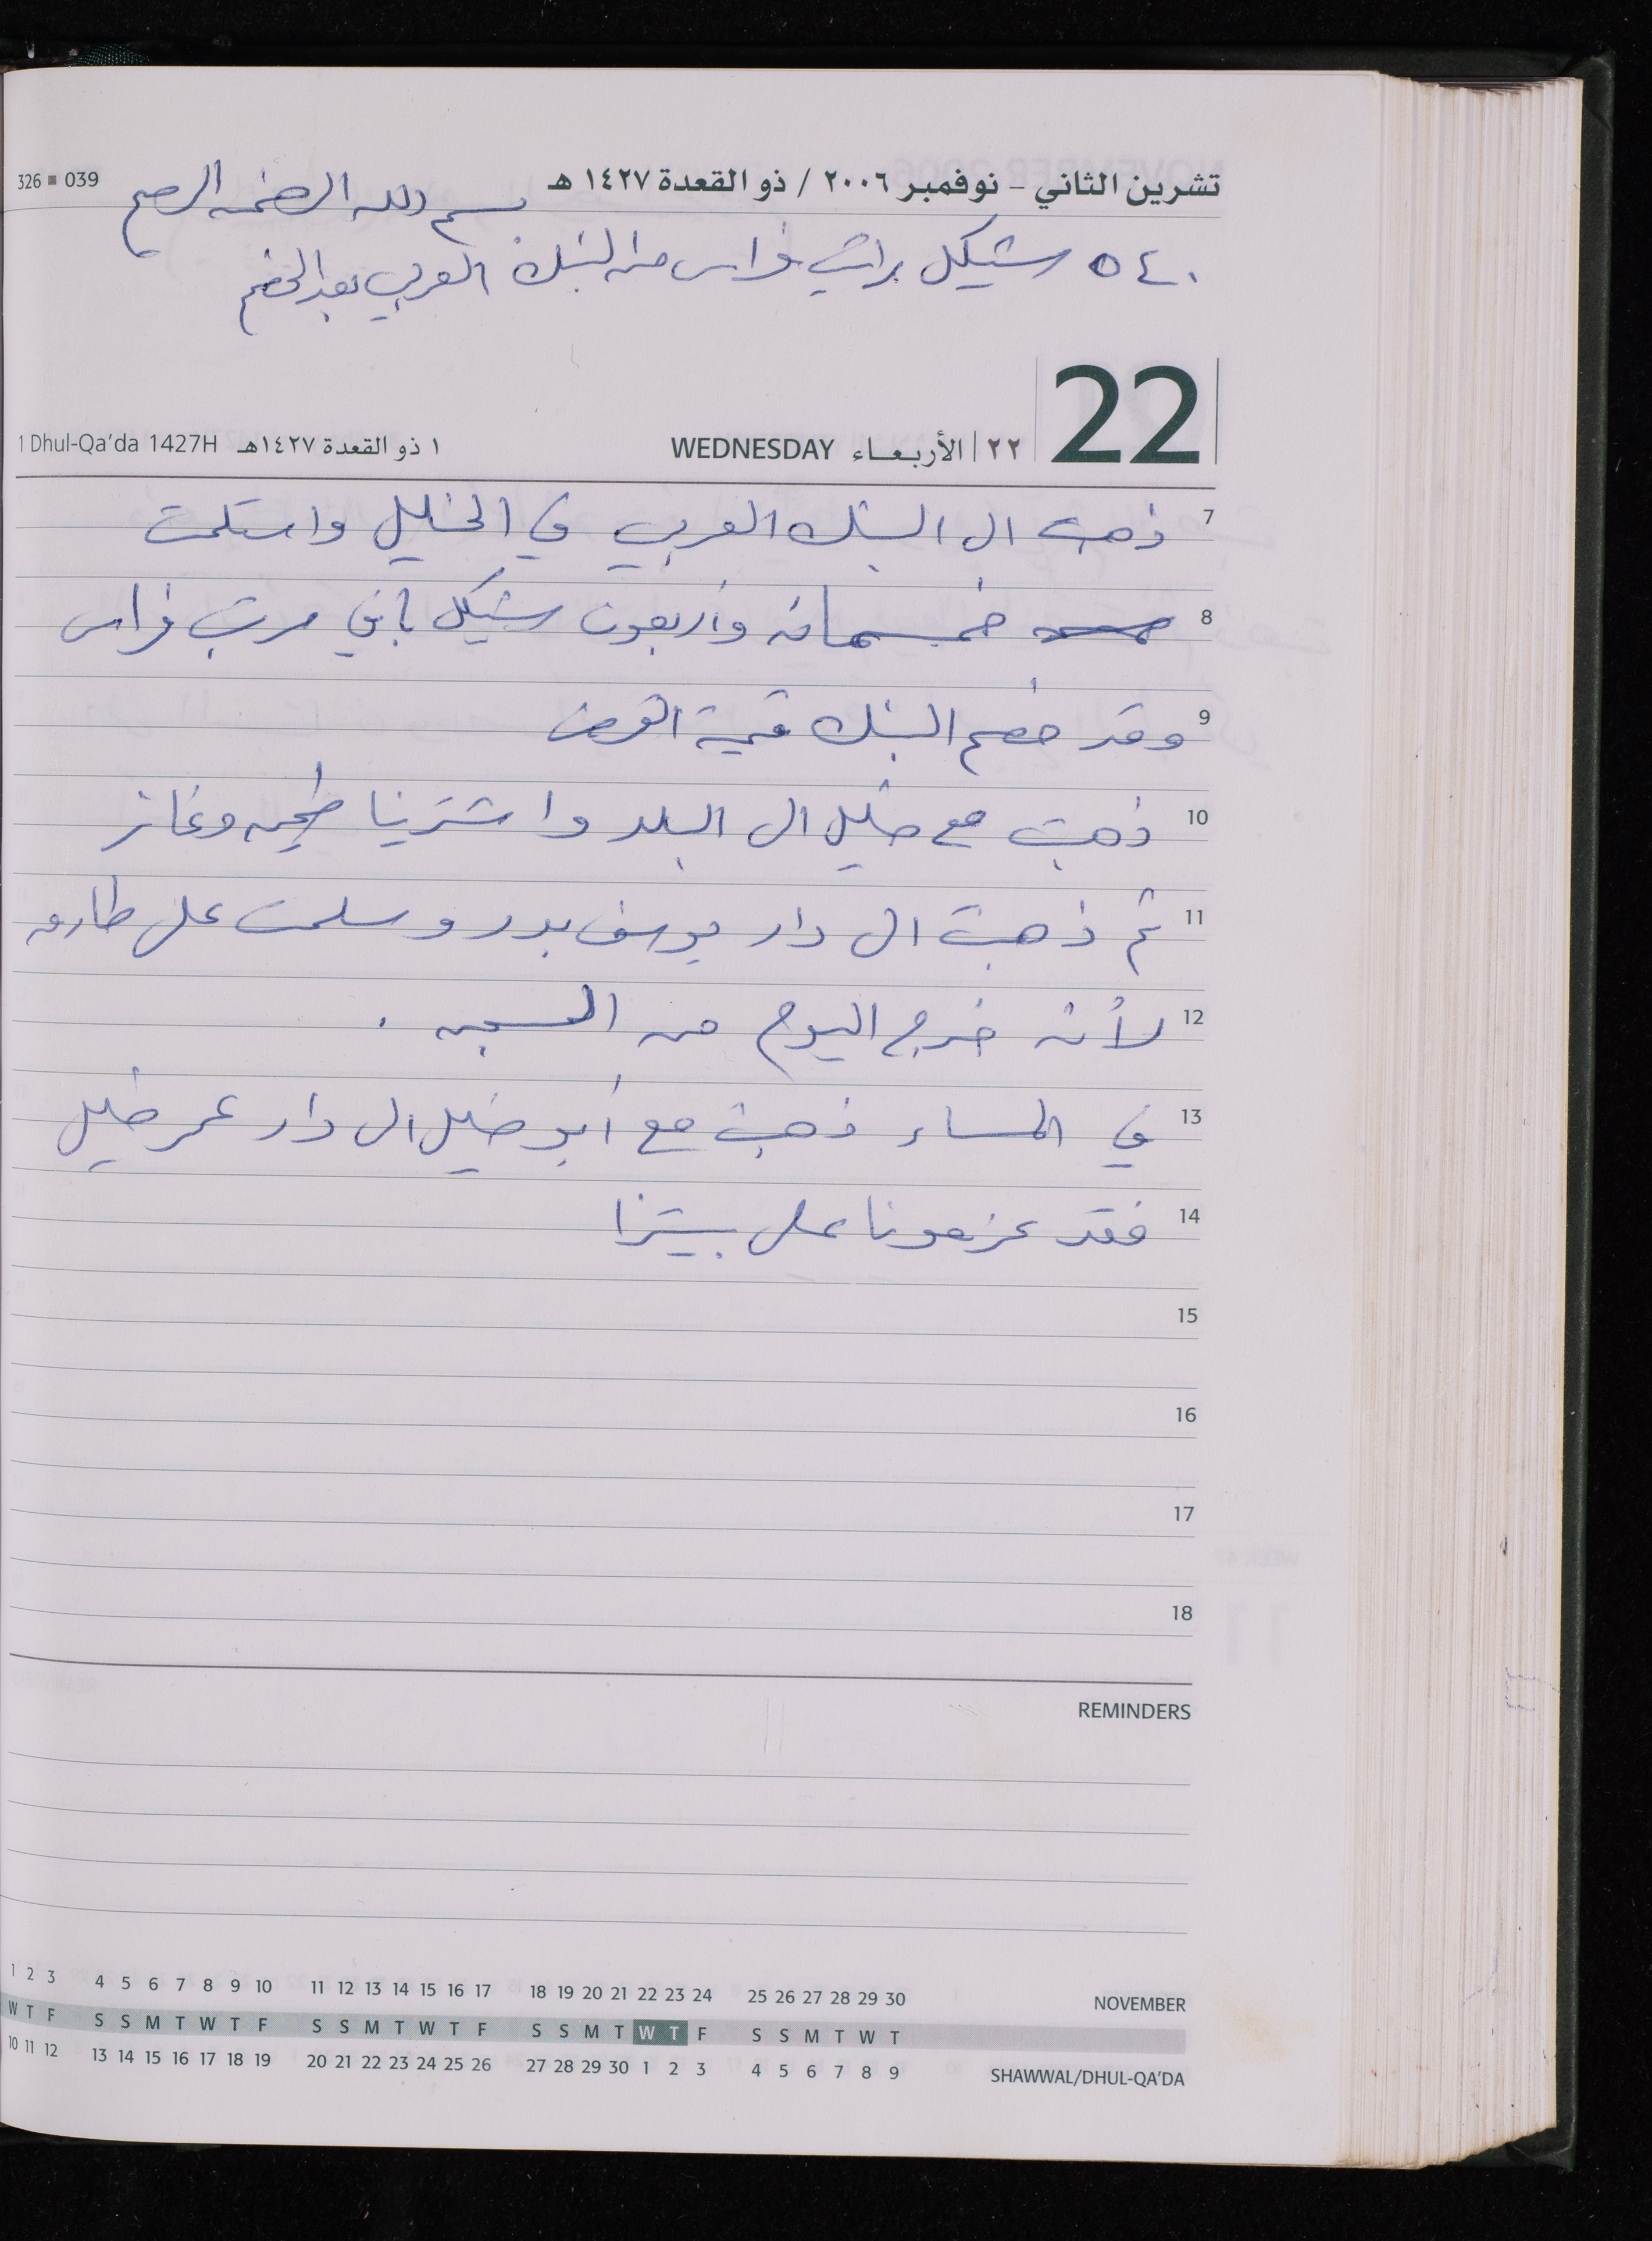 تشرين الثاني - نوفمبر ٢٠٠٦ / ذو القعدة ١٤٢٧ هـ
326 ▪ 039
بسم الله الرحمن الرحيم
٥٤٠ شيكل براتب فراس من البنك العربي بعد الخصم
22
٢٢ | الأربعاء WEDNESDAY
١ ذو القعدة ١٤٢٧هـ 1 Dhul-Qa'da 1427H
7 ذهبت الى البنك العربي في الخليل واستلمت
8 خمسمائة وأربعون شيكل باقي مرتب فراس
9 وقد خصم البنك قيمة القرض
10 ذهبت مع خليل الى البلد واشترينا طحين وغاز
11 ثم ذهبت الى دار يوسف بدر وسلمت على طارق
12 لأنه خرج اليوم من السجن .
13 في المساء ذهبت مع أبو خليل الى دار عمر خليل
14 فقد عزمونا على بيتزا
15
16
17
18
REMINDERS
1 2 3 4 5 6 7 8 9 10 11 12 13 14 15 16 17 18 19 20 21 22 23 24 25 26 27 28 29 30 NOVEMBER
W T F S S M T W T F S S M T W T F S S M T W T F S S M T W T
10 11 12 13 14 15 16 17 18 19 20 21 22 23 24 25 26 27 28 29 30 1 2 3 4 5 6 7 8 9 SHAWWAL/DHUL-QA'DA